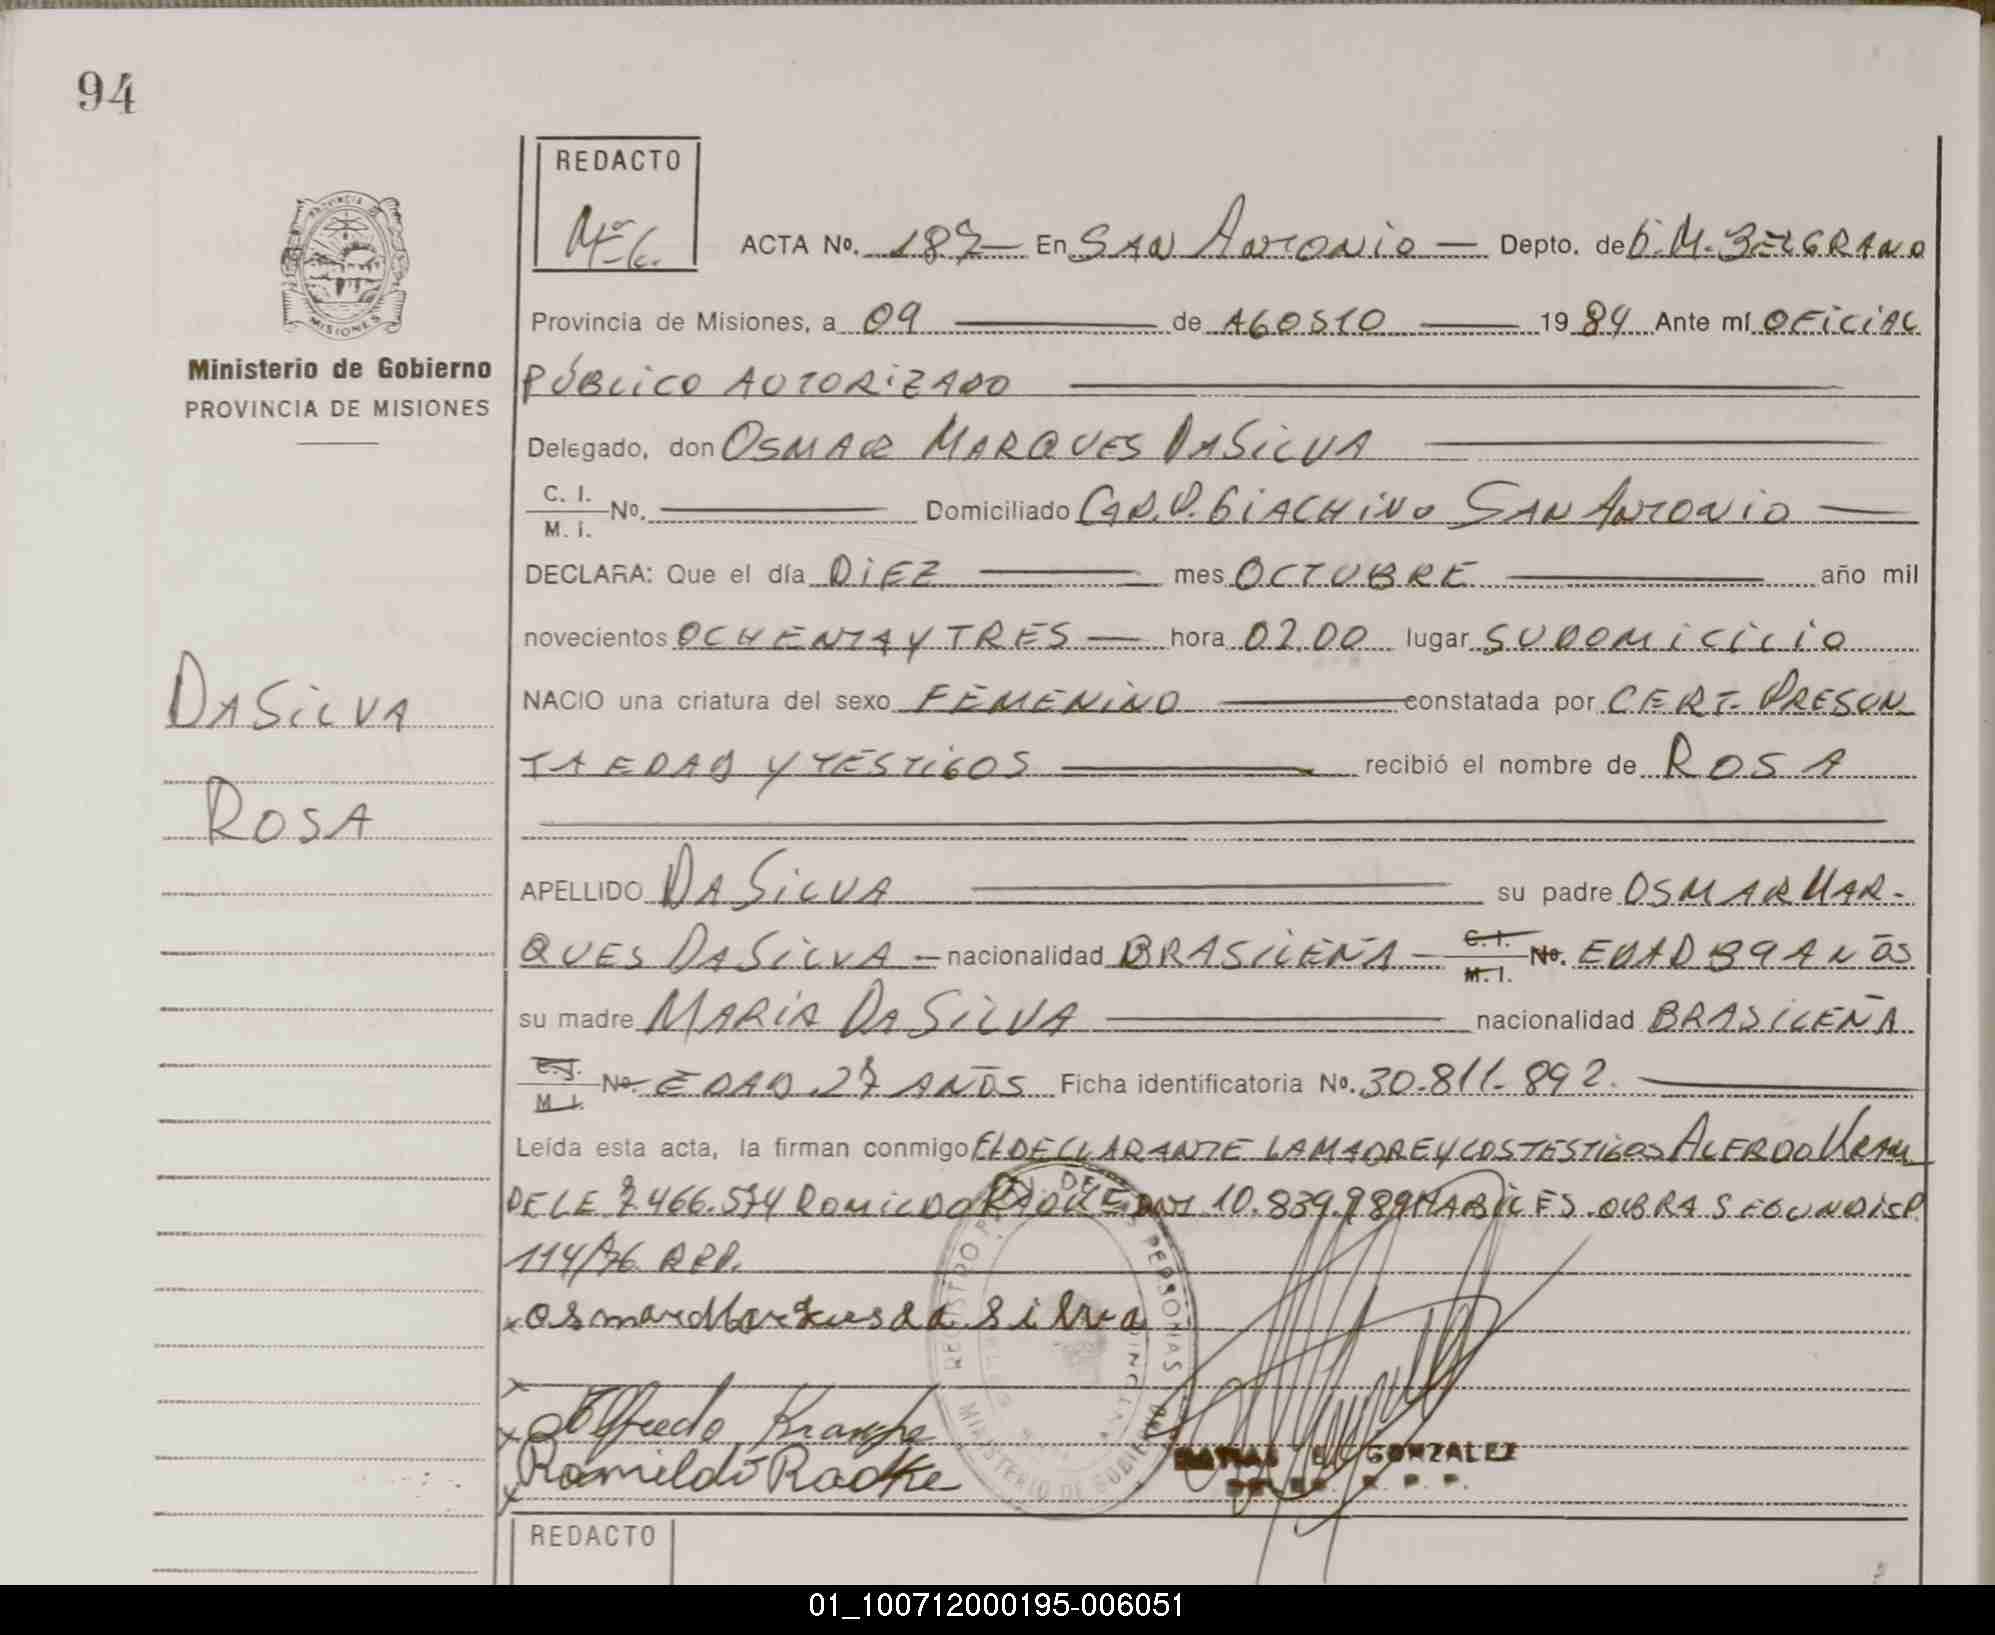 94
REDACTO
ACTA No. 187 En SAN ANTONIO Depto. de G. M. BELGRANO
Provincia de Misiones, a 09 de AGOSTO 1984 Ante mí OFICIAL
PÚBLICO AUTORIZADO
Delegado, don OSMAR MARQUES DASILVA
C. I.
M. I. No. Domiciliado GIACHINO SAN ANTONIO
DECLARA: Que el día DIEZ mes OCTUBRE año mil
novecientos OCHENTA Y TRES hora 02,00 lugar SU DOMICILIO
NACIO una criatura del sexo FEMENINO constatada por CERT. PRESUN
TA EDAD Y TESTIGOS recibió el nombre de ROSA
APELLIDO DA SILVA su padre OSMAR MAR-
QUES DA SILVA nacionalidad BRASILEÑA C. I. M. I. No. EDAD 39 AÑOS
su madre MARIA DA SILVA nacionalidad BRASILEÑA
C. I. M. I. No. EDAD 27 AÑOS Ficha identificatoria No. 30.811.892.
Leída esta acta, la firman conmigo EL DECLARANTE LA MADRE Y LOS TESTIGOS ALFREDO KRAM
PE LE 7.466.574 ROMILDO RADKE DNI 10.839.989 HABILES. OBRA SEGUN DISP.
114/76 RPP.
x osmar Markues da Silva
x
x Alfredo Krampe
x Romildo Radke
GONZALEZ
REGISTRO PCIAL. DE LAS PERSONAS
MINISTERIO DE GOBIERNO
Ministerio de Gobierno
PROVINCIA DE MISIONES
DASILVA
ROSA
PROVINCIA DE
MISIONES
REDACTO
01_100712000195-006051